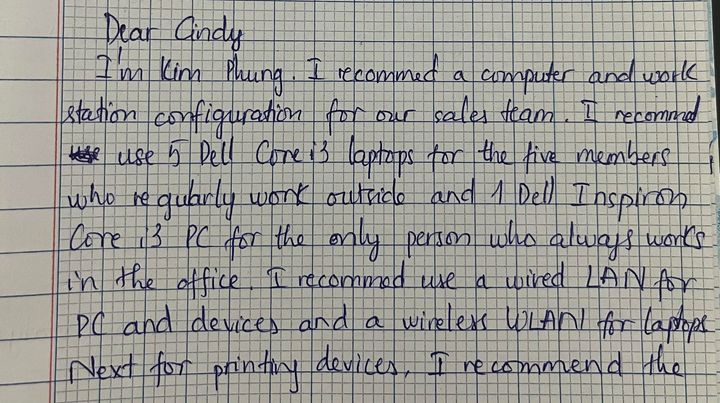 Dear Cindy
I'm Kim Phung. I recommed a computer and work
station configuration for our sales team. I recommed
use 5 Dell Core i3 laptops for the five members
who regularly work outside and 1 Dell Inspiron
Core i3 PC for the only person who always works
in the office. I recommed use a wired LAN for
PC and devices and a wireless WLAN for laptops
Next for printing devices, I recommend the